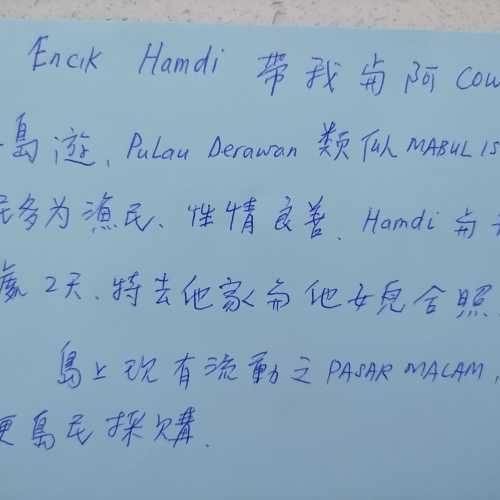 Encik Hamdi 带我与阿COW
島遊、Pulau Derawan 類似MABUL IS
民多为漁民、性情良善、Hamdi 与
處2天、特去他家与他女兒合照、
島上玖有流動之PASAR MALAM,
更島民採購.